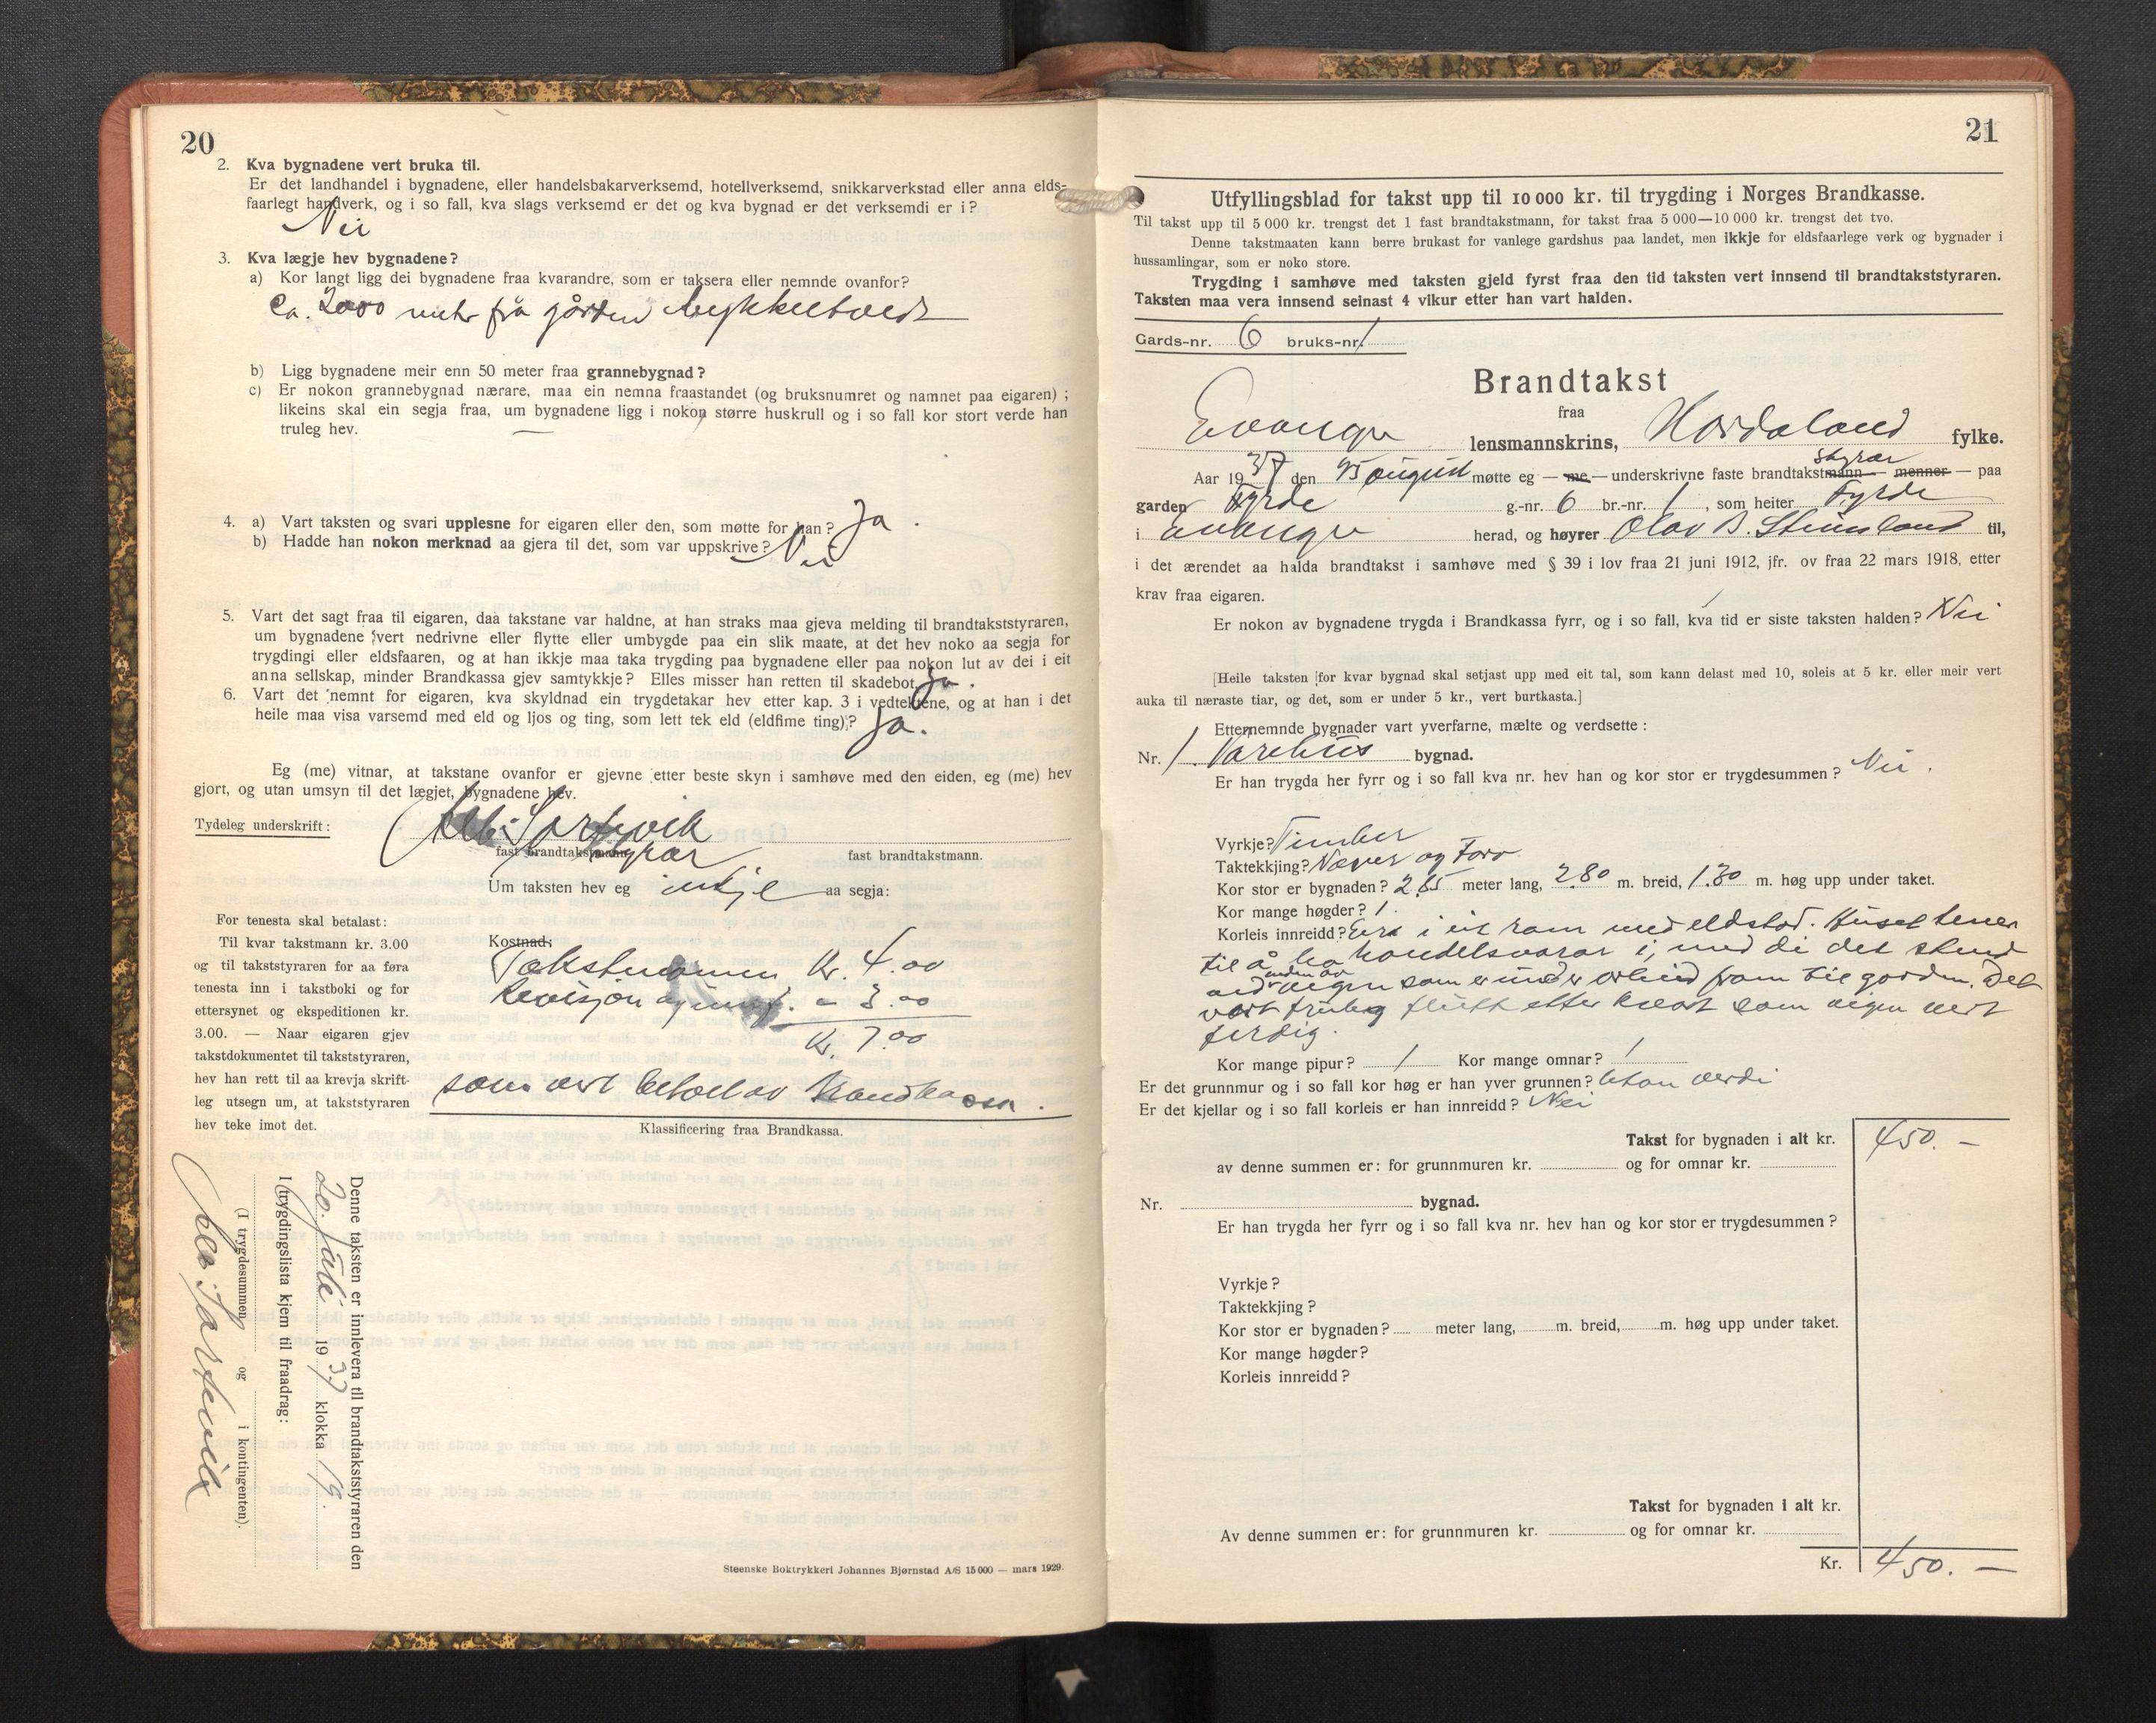 20
2. Kva bygnadene vert bruka til.
Er det landhandel i bygnadene, eller handelsbakarverksemd, hotellverksemd, snikkarverkstad eller anna elds-
faarlegt handverk, og i so fall, kva slags verksemd er det og kva bygnad er det verksemdi er i?
Nei
3. Kva lægje hev bygnadene?
a) Kor langt ligg dei bygnadene fraa kvarandre, som er taksera eller nemnde ovanfor?
Ca. 2000 meter frå gården
b) Ligg bygnadene meir enn 50 meter fraa grannebygnad?
c) Er nokon grannebygnad nærare, maa ein nemna fraastandet (og bruksnumret og namnet paa eigaren) ;
likeins skal ein segja fraa, um bygnadene ligg i nokon større huskrull og i so fall kor stort verde han
truleg hev. —
4. a) Vart taksten og svari upplesne for eigaren eller den, som møtte for han? Ja.
b) Hadde han nokon merknad aa gjera til det, som var uppskrive? Nei
5. Vart det sagt fraa til eigaren, daa takstane var haldne, at han straks maa gjeva melding til brandtakststyraren,
um bygnadene vert nedrivne eller flytte eller umbygde paa ein slik maate, at det hev noko aa segja for
trygdingi eller eldsfaaren, og at han ikkje maa taka trygding paa bygnadene eller paa nokon lut av dei i eit
anna sellskap, minder Brandkassa gjev samtykkje? Elles misser han retten til skadebot. Ja.
6. Vart det nemnt for eigaren, kva skyldnad ein trygdetakar hev etter kap. 3 i vedtektene, og at han i det
heile maa visa varsemd med eld og ljos og ting, som lett tek eld (eldfime ting)? Ja.
Eg (me) vitnar, at takstane ovanfor er gjevne etter beste skyn i samhøve med den eiden, eg (me) hev
gjort, og utan umsyn til det lægjet, bygnadene hev.
Tydeleg underskrift: Sortevik
fast brandtakstmann styrar. fast brandtakstmann.
Um taksten hev eg inkje aa segja:
For tenesta skal betalast:
Til kvar takstmann kr. 3.00
og til takststyraren for aa føra
tenesta inn i takstboki og for
ettersynet og ekspeditionen kr.
3.00. — Naar eigaren gjev
takstdokumentet til takststyraren,
hev han rett til aa krevja skrift-
leg utsegn um, at takststyraren
hev teke imot det.
Kostnad:
Takstmannen Kr. 4.00
Revisjon og - 3.00
Kr. 7.00
som vert betalt av Brandkassa.
Klassificering fraa Brandkassa.
Denne taksten er innlevera til brandtakststyraren den
20. juli 1937 klokka 19.
I trygdingslista kjem til fraadrag:
(I trygdesummen) og i kontingenten).
Sortevik
Steenske Boktrykkeri Johannes Bjørnstad A/S 15 000 — mars 1929.
21
Utfyllingsblad for takst upp til 10 000 kr. til trygding i Norges Brandkasse.
Til takst upp til 5 000 kr. trengst det 1 fast brandtakstmann, for takst fraa 5 000—10 000 kr. trengst det tvo.
Denne takstmaaten kann berre brukast for vanlege gardshus paa landet, men ikkje for eldsfaarlege verk og bygnader i
hussamlingar, som er noko store.
Trygding i samhøve med taksten gjeld fyrst fraa den tid taksten vert innsend til brandtakststyraren.
Taksten maa vera innsend seinast 4 vikur etter han vart halden.
Gards-nr. 6 bruks-nr. 1
Brandtakst
fraa
Evanger lensmannskrins, Hordaland fylke.
Aar 1937 den 15 august møtte eg — me — underskrivne faste brandtakstmann styrar — menner — paa
garden Fyrde g.-nr. 6 br.-nr. 1, som heiter Fyrde
i Evanger herad, og høyrer Olav B. Steinsland til,
i det ærendet aa halda brandtakst i samhøve med § 39 i lov fraa 21 juni 1912, jfr. ov fraa 22 mars 1918, etter
krav fraa eigaren.
Er nokon av bygnadene trygda i Brandkassa fyrr, og i so fall, kva tid er siste taksten halden? Nei
[Heile taksten for kvar bygnad skal setjast upp med eit tal, som kann delast med 10, soleis at 5 kr. eller meir vert
auka til næraste tiar, og det, som er under 5 kr., vert burtkasta.]
Etternemnde bygnader vart yverfarne, mælte og verdsette :
Nr. 1. Varehus bygnad.
Er han trygda her fyrr og i so fall kva nr. hev han og kor stor er trygdesummen? Nei.
Vyrkje? Timber
Taktekkjing? Næver og Torv
Kor stor er bygnaden? 2.65 meter lang, 2.80 m. breid, 1.80 m. høg upp under taket.
Kor mange høgder? 1.
Korleis innreidd? i eit rom med eldstad. Huset tener
til å ha handelsvarar i, med di det stend
ved enden av veigen som er under arbeid fram til garden. Det
vert truleg flutt etter kvart som veigen vert
ferdig.
Kor mange pipur? 1 Kor mange omnar? 1
Er det grunnmur og i so fall kor høg er han yver grunnen? Utan verdi
Er det kjellar og i so fall korleis er han innreidd? Nei
Takst for bygnaden i alt kr. 450.—
av denne summen er: for grunnmuren kr. og for omnar kr.
Nr. bygnad.
Er han trygda her fyrr og i so fall kva nr. hev han og kor stor er trygdesummen?
Vyrkje?
Taktekkjing?
Kor stor er bygnaden? meter lang, m. breid, m. høg upp under taket.
Kor mange høgder?
Korleis innreidd?
Takst for bygnaden i alt kr.
Av denne summen er: for grunnmuren kr. og for omnar kr.
Kr. 450.—